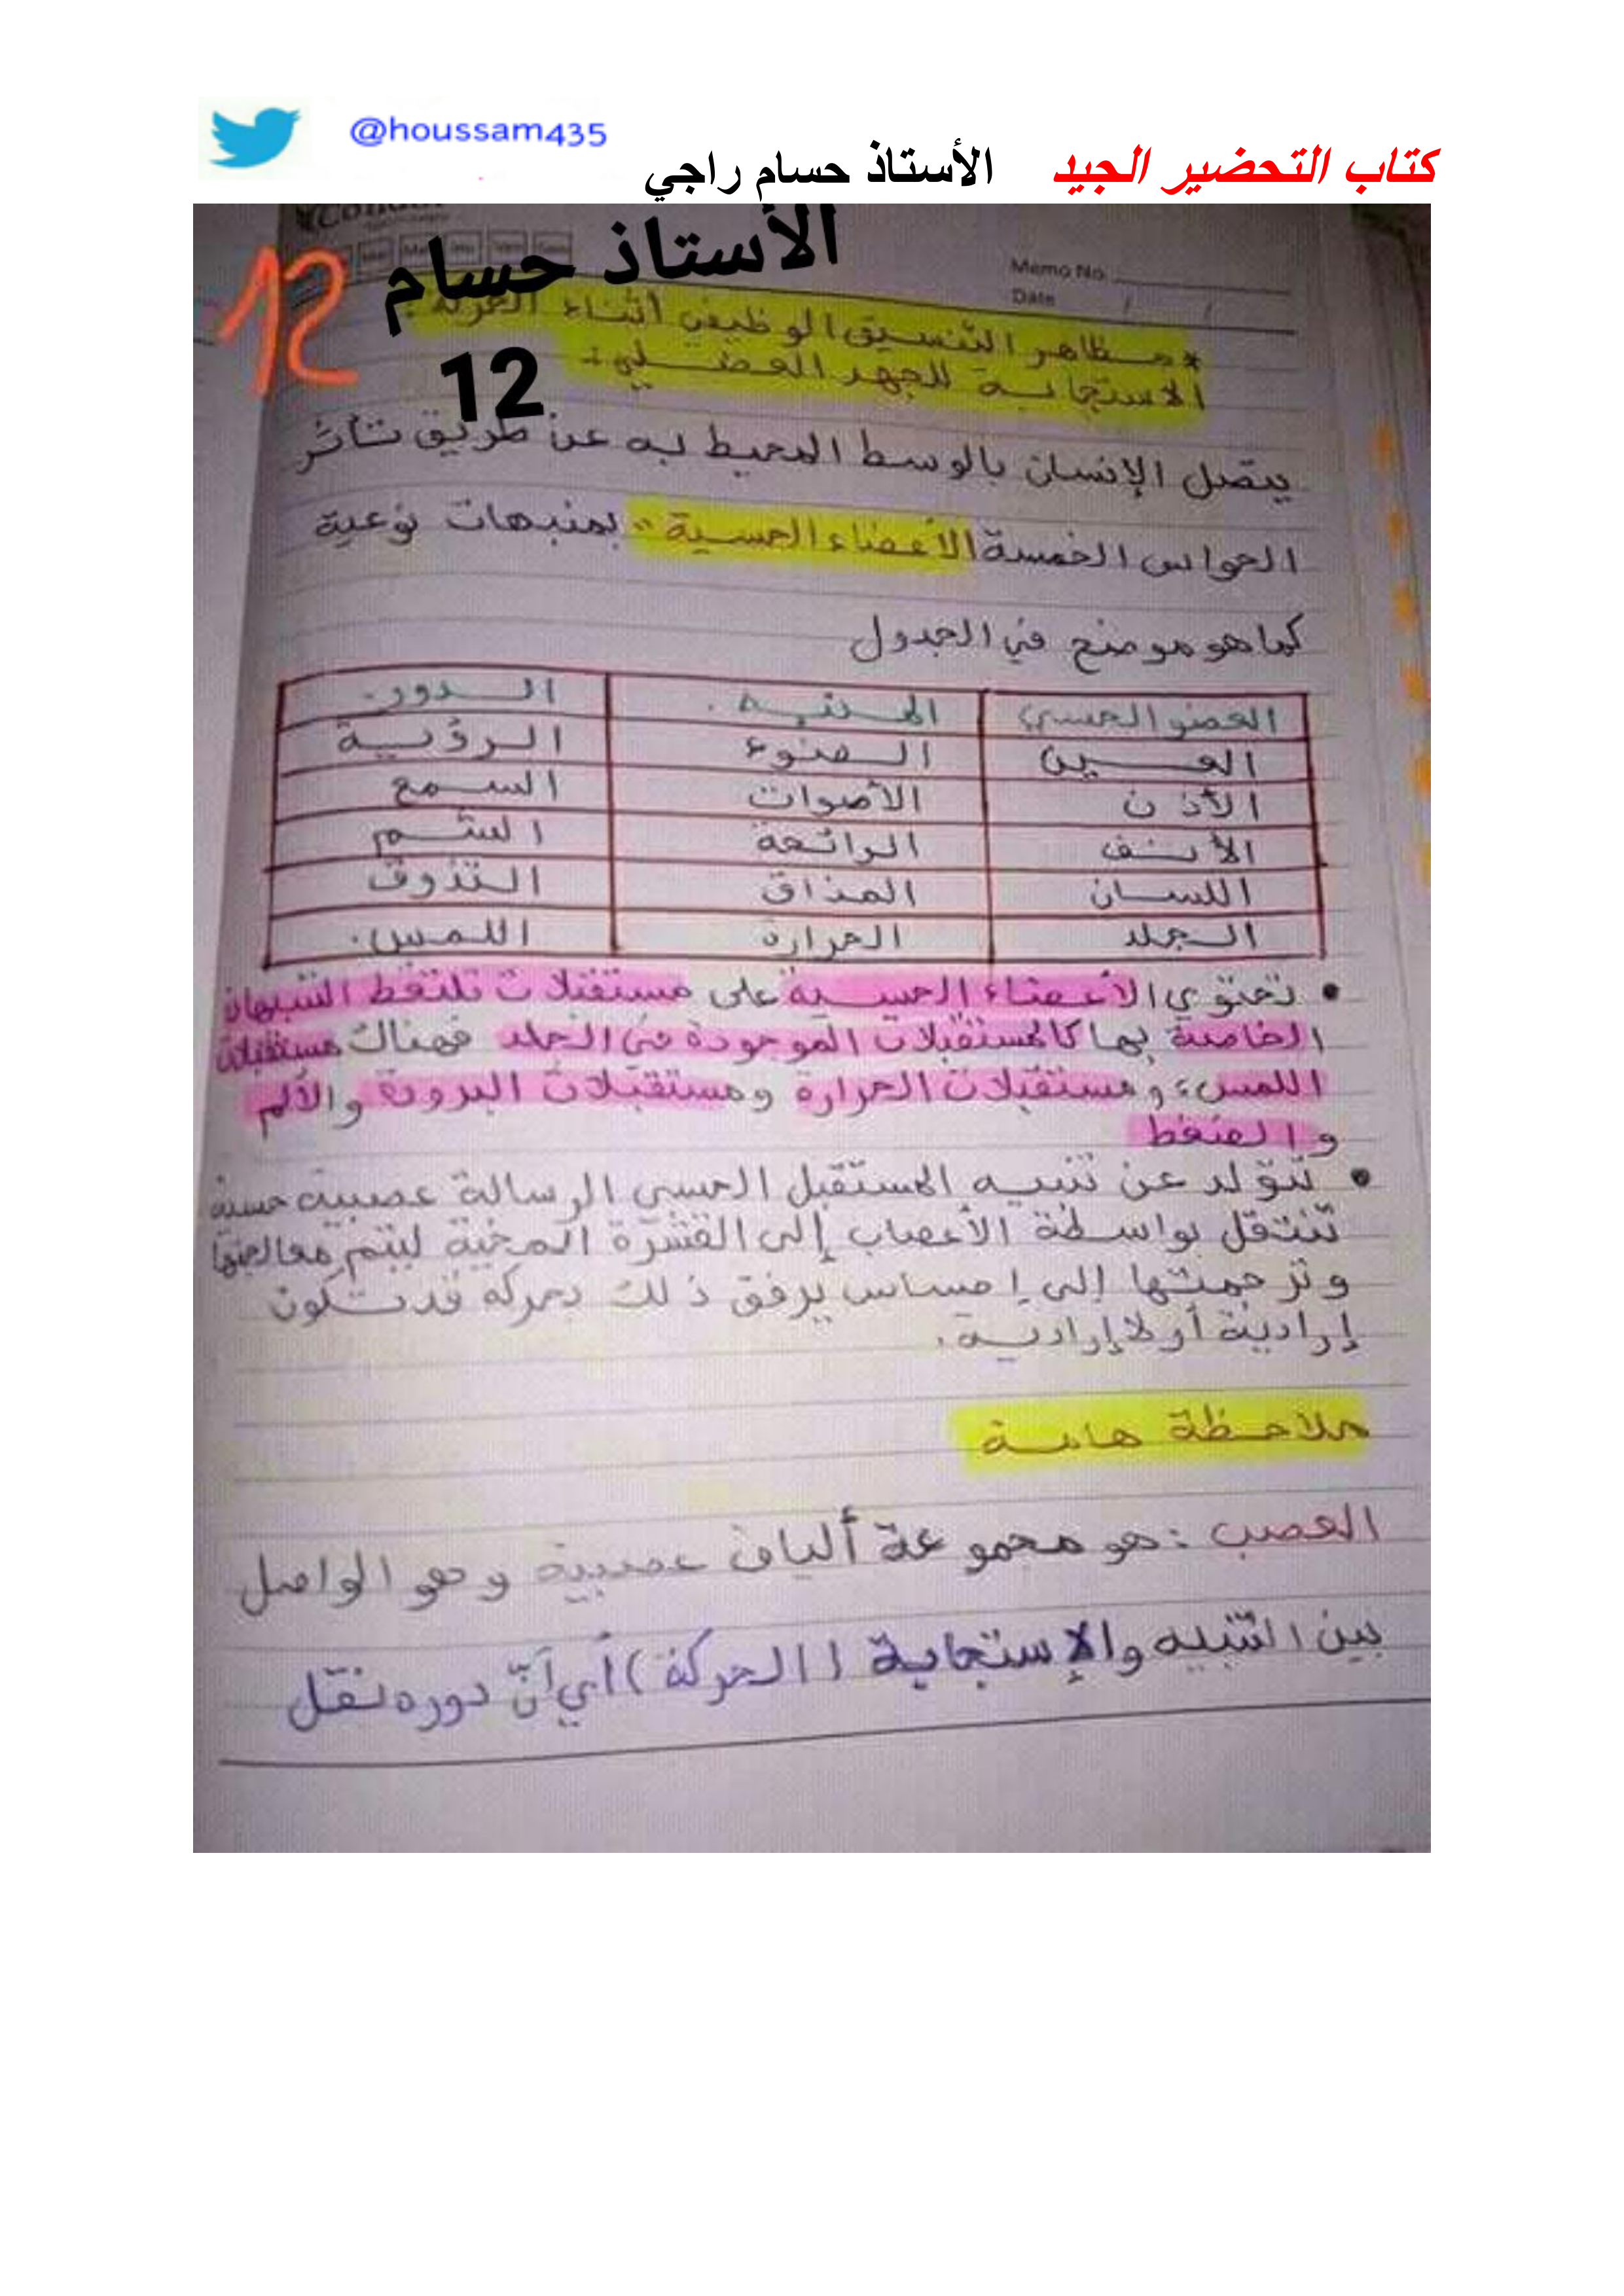 @houssam435
كتاب التحضير الجيد الأستاذ حسام راجي
الأستاذ حسام
12
12
Memo No.
Date / /
* مظاهر التنسيق الوظيفي أثناء
الاستجابة للجهد العضلي :
يتصل الإنسان بالوسط المحيط به عن طريق تأثر
الحواس الخمسة "الأعضاء الحسية" بمنبهات نوعية
كما هو موضح في الجدول
العضو الحسي المنبه . الدور .
العين الضوء الرؤية
الأذن الأصوات السمع
الأنف الرائحة الشم
اللسان المذاق التذوق
الجلد الحرارة اللمس .
• تحتوي الأعضاء الحسية على مستقبلات تلتقط التنبيهات
الخاصة بها كالمستقبلات الموجودة في الجلد فهناك مستقبلات
اللمس، ومستقبلات الحرارة ومستقبلات البرودة والألم
والضغط
• تتولد عن تنبيه المستقبل الحسي الرسالة عصبية حسية
تنتقل بواسطة الأعصاب إلى القشرة المخية ليتم معالجتها
وترجمتها إلى إحساس يرفق ذلك بحركة قد تكون
إرادية أو لاإرادية .
ملاحظة هامة
العصب : هو مجموعة ألياف عصبية وهو الواصل
بين التنبيه والإستجابة (الحركة) أي أنّ دوره نقل